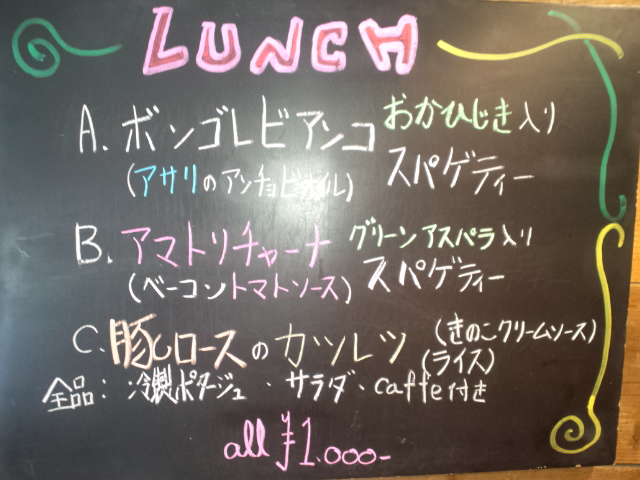 LUNCH
A. ボンゴレビアンコ おかひじき入り
(アサリのアンチョビオイル) スパゲティー
B. アマトリチャーナ グリーンアスパラ入り
(ベーコントマトソース) スパゲティー
C. 豚ヒロースのカツレツ (きのこクリームソース)
(ライス)
全品: 冷製ポタージュ・サラダ・caffe付き
all ¥1.000-